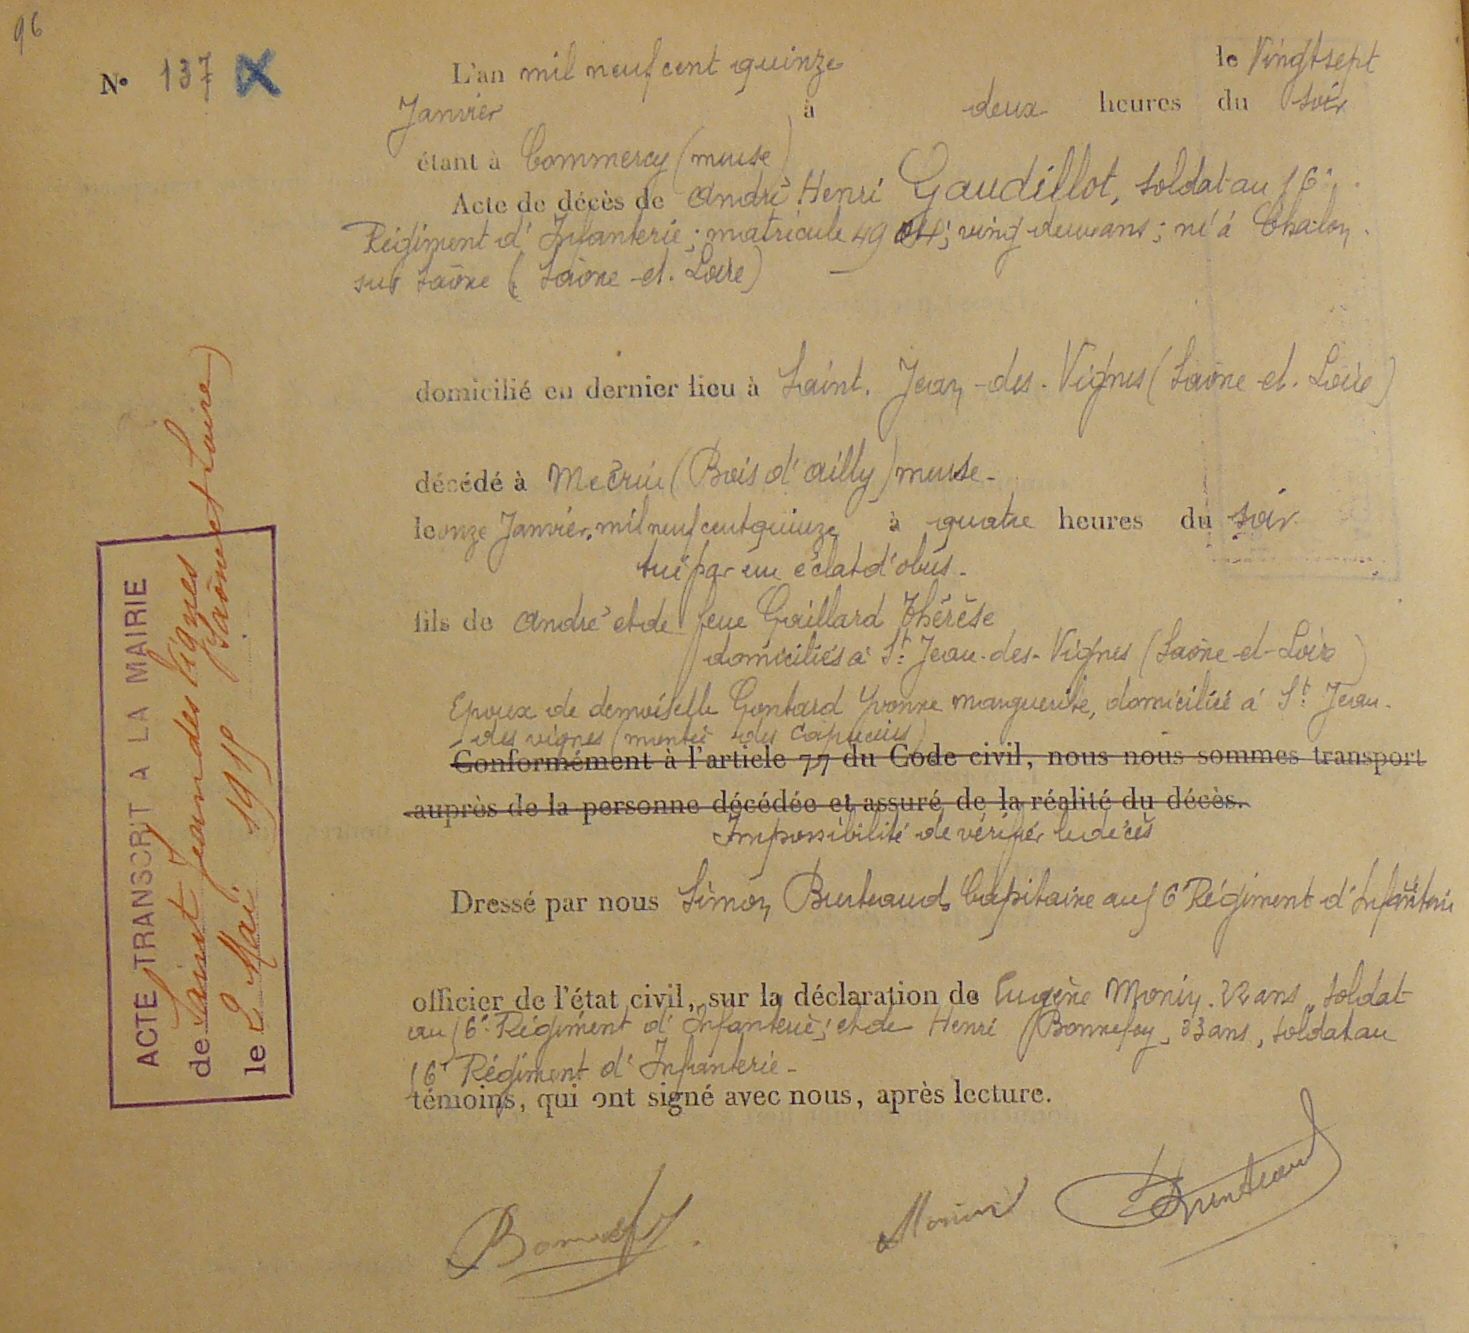 96
N° 137 X
L'an mil neuf cent quinze le Vingt sept
Janvier à deux heures du soir
étant à Commercy (meuse)
Acte de décès de André Henri Gaudillot, soldat au 16e
Régiment d'Infanterie; matricule 4904; ving deux ans; né à Chalon
sur Saône (Saône-et-Loire)
domicilié en dernier lieu à Saint-Jean-des-Vignes (Saône-et-Loire)
décédé à Mécrin (Bois d'ailly) meuse-
le onze Janvier mil neuf cent quinze à quatre heures du soir
tué par un éclat d'obus-
fils de André et de feue Gaillard Thérèse
domiciliés à St Jean-des-Vignes (Saône-et-Loire)
Epoux de demoiselle Gontard Yvonne Marguerite, domiciliée à St Jean-
des vignes (montée des Capucins)
Conformément à l'article 77 du Code civil, nous nous sommes transport
auprès de la personne décédée et assuré de la réalité du décès.
Impossibilité de vérifier le décès
Dressé par nous Simon Burtraud, Capitaine au 16e Régiment d'Infanterie
officier de l'état civil, sur la déclaration de Eugène Monin. 22 ans, soldat
au 16e Régiment d'Infanterie; et de Henri Bonnefoy, 33 ans, soldat au
16e Régiment d'Infanterie-
témoins, qui ont signé avec nous, après lecture.
Bonnefoy Monin
ACTE TRANSCRIT A LA MAIRIE
de Saint Jean des Vignes (Saône et Loire)
le 2 Mai 1915